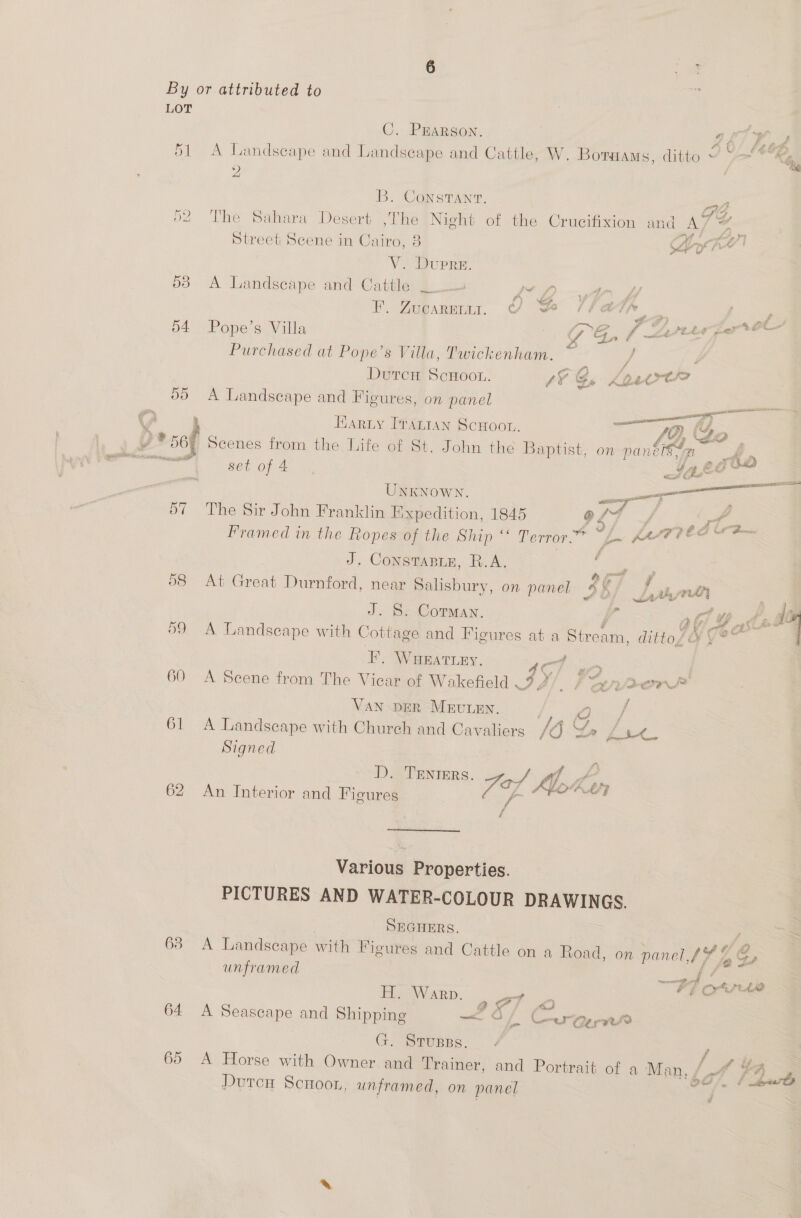 6
By or attributed to
LOT
C. PEARSON.
51 A Landscape and Landscape and Cattle, W. BOTHAMS, ditto
2
B. CONSTANT.
52 The Sahara Desert ,The Night of the Crucifixion and A
Street Scene in Cairo, 3
V. DUPRE.
53 A Landscape and Cattle
F. ZUCARELLI.
54 Pope's Villa
Purchased at Pope's Villa, Twickenham.
DUTCH SCHOOL.
55 A Landscape and Figures, on panel
EARLY ITALIAN SCHOOL.
*56 Scenes from the Life of St. John the Baptist, on panels,
set of 4
UNKNOWN.
57 The Sir John Franklin Expedition, 1845
Framed in the Ropes of the Ship "Terror."
J. CONSTABLE, R.A.
58 At Great Durnford, near Salisbury, on panel
J. S. COTMAN.
59 A Landscape with Cottage and Figures at a Stream, ditto
F. WHEATLEY.
60 A Scene from The Vicar of Wakefield
VAN DER MEULEN.
61 A Landscape with Church and Cavaliers
Signed
D. TENIERS.
62 An Interior and Figures
Various Properties.
PICTURES AND WATER-COLOUR DRAWINGS.
SEGHERS.
63 A Landscape with Figures and Cattle on a Road, on panel,
unframed
H. WARD.
64 A Seascape and Shipping
G. STUBBS.
65 A Horse with Owner and Trainer, and Portrait of a Man,
DUTCH SCHOOL, unframed, on panel